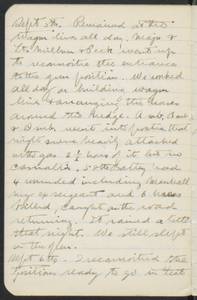 Sept 5th. Remained at the
wagon line all day. Major &
Lt. Wilson & Peck went up
to reconnoitre the entrance
to the gun position. We worked
all day on building wagon
lines & arranging the horses
around the hedge. A sub, B sub
& D sub went into position that
night and were heavily attacked
with gas 2½ hours of it but no
casualties. 50th Battery had
4 wounded including
my ex sergeant and 6 horses
killed, caught on the road
returning. It rained a little
that night. We still slept
in the
Sept 6th. I reconnoitred the
position ready to go in that